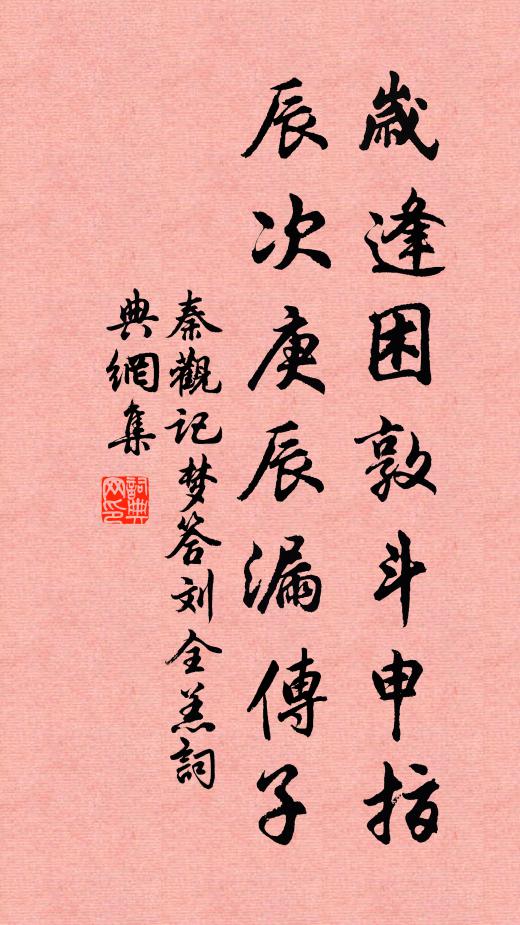 歲逢困敦斗申指
辰次庚辰漏傳子
秦觀记梦答刘全羔詞
典網集
詞典网印